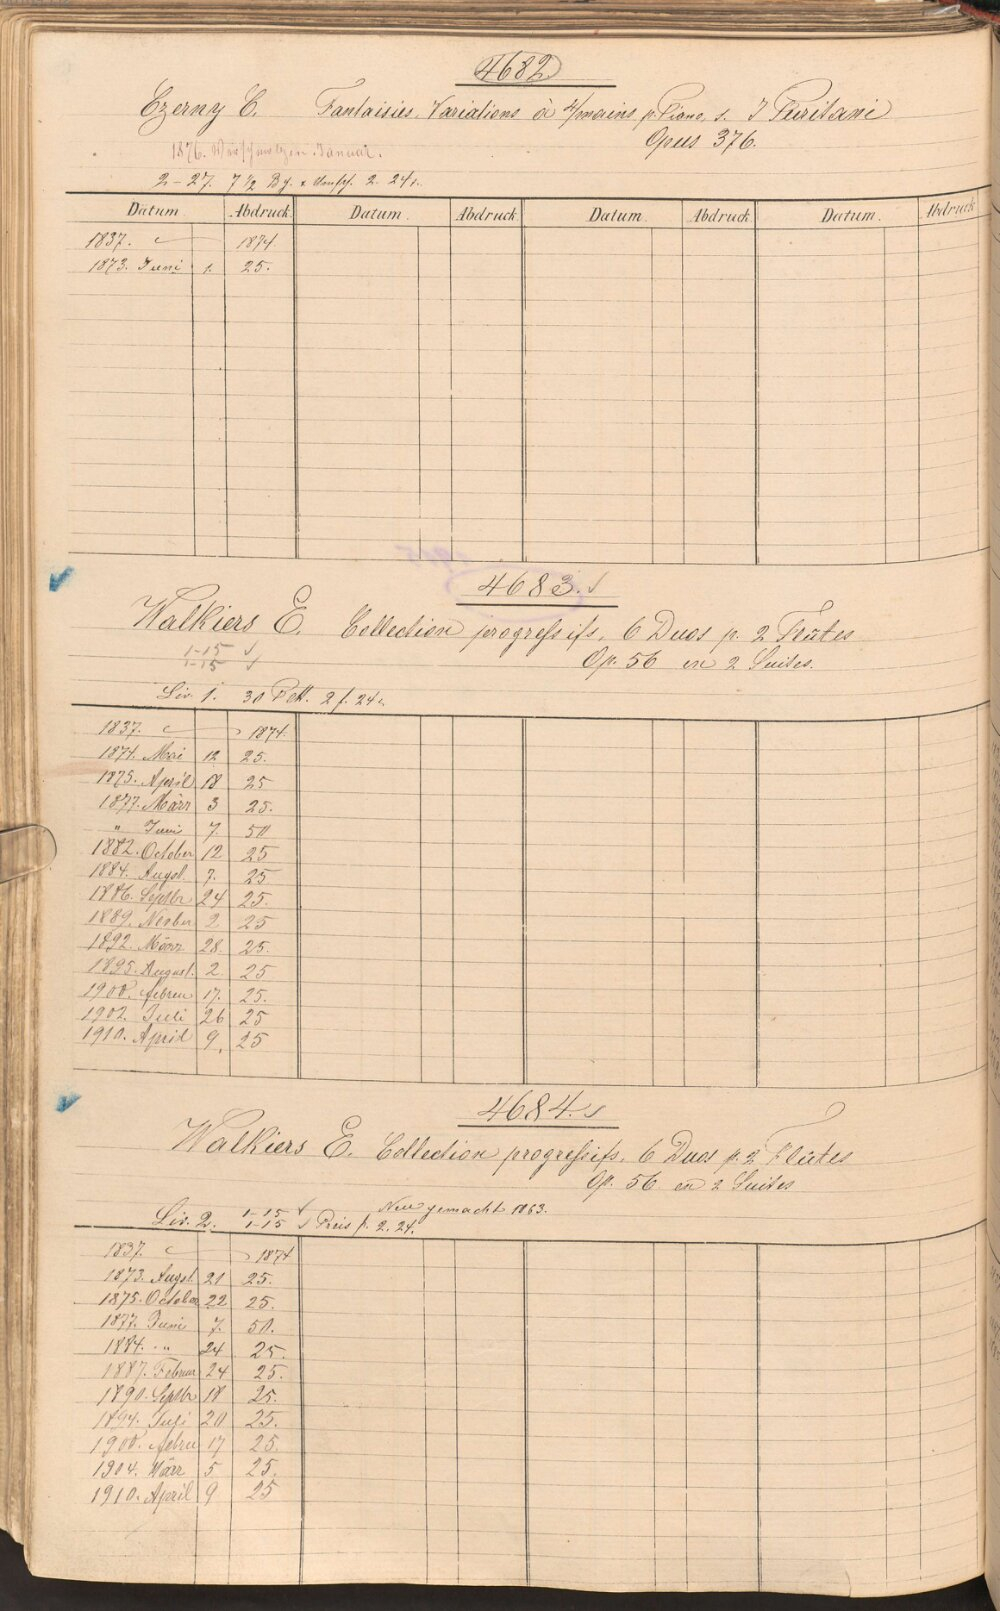 4682
Czerny C. Fantaisies, Variations à 4/mains p. Piano, s. I Puritani
Opus 376.
1876. Verschmolzen Januar.
2–27. 7 1/2 Bg. 2. 24
Datum. Abdruck. Datum. Abdruck Datum. Abdruck Datum. Abdruck
1837. 1874
1873. Juni 1. 25.
4683.
Walkiers E. Collection progressifs, 6 Duos p. 2 Flûtes
1-15
1-15
Op. 56 en 2 Suites.
Liv. 1. 30 Plt. 2 f. 24
1837. 1874.
1874. Mai 12 25.
1875. April 18 25
1877. März 3 25.
" Juni 7. 50
1882. October 12 25
1884. Augst. 7. 25
1886. Septbr 24 25.
1889. Novber 2 25
1892. März 28. 25.
1895. August. 2 25
1900. Febru 17. 25.
1902. Juli 26 25
1910. April 9. 25
4684.
Walkiers E. Collection progressifs, 6 Duos p. 2 Flûtes
Op. 56 en 2 Suites
Neu gemacht 1863.
Liv. 2. 1-15
1-15 Preis f. 2. 24.
1837. 1874
1873. Augst. 21 25.
1875. October 22 25.
1877. Juni 7. 50.
1884. " 24 25.
1887. Februar 24 25.
1890. Septbr 18 25.
1894. Juli 20 25.
1900. Febru 17 25.
1904. März 5 25.
1910. April 9 25